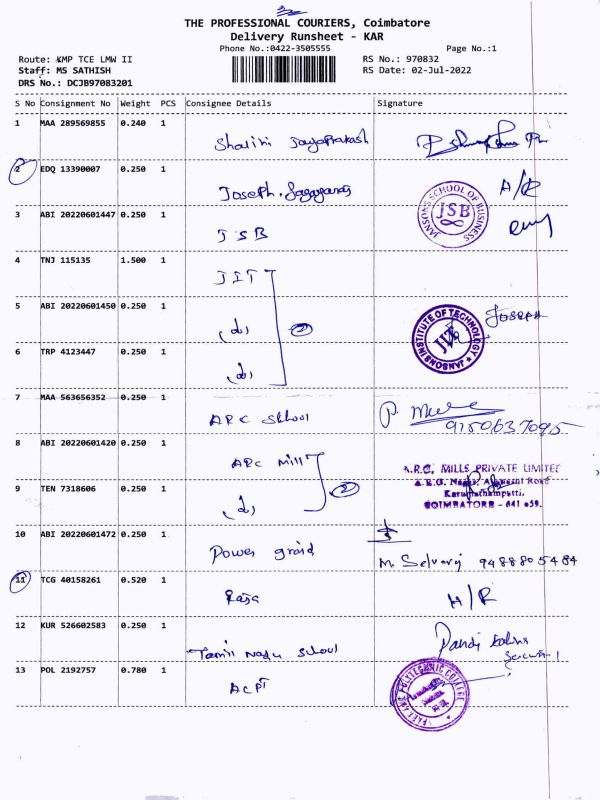 THE PROFESSIONAL COURIERS, Coimbatore
Delivery Runsheet - KAR
Phone No.:0422-3505555
Page No.:1
Route: KMP TCE LMW II
RS No.: 970832
Staff: MS SATHISH
RS Date: 02-Jul-2022
DRS No.: DCJB97083201
S No Consignment No Weight PCS Consignee Details Signature
1 MAA 289569855 0.240 1 Shalini Jayaprakash
2 EDQ 13390007 0.250 1 Joseph. A/R
JANSONS SCHOOL OF BUSINESS JSB
3 ABI 20220601447 0.250 1 JSB
4 TNJ 115135 1.500 1 JIT
5 ABI 20220601450 0.250 1 (d) 2 JOSEPH
JANSONS INSTITUTE OF TECHNOLOGY JIT
6 TRP 4123447 0.250 1 (d)
7 MAA 563656352 0.250 1 ARC School P.
9150637095
8 ABI 20220601420 0.250 1 ARC Mill
A.R.C. MILLS PRIVATE LIMITED
9 TEN 7318606 0.250 1 (d) 2
Karumathampatti,
COIMBATORE - 641 659.
10 ABI 20220601472 0.250 1 Power grid
M. Selvaraj 9488805484
11 TCG 40158261 0.520 1 Raja H/R
12 KUR 526602583 0.250 1 Tamil Nadu School Pandi
13 POL 2192757 0.780 1 ACPT
POLYTECHNIC COLLEGE